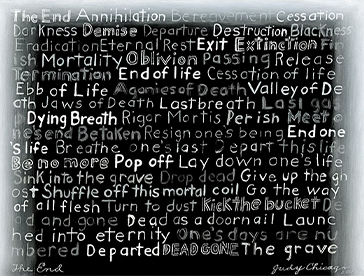 The End Annihilation Bereavement Cessation
Darkness Demise Departure Destruction Blackness
Eradication Eternal Rest Exit Extinction Fin
ish Mortality Oblivion Passing Release
Termination End of life Cessation of life
Ebb of Life Agonies of Death Valley of De
ath Jaws of Death Last breath Last gas
p Dying Breath Rigor Mortis Perish Meet o
nes end Be taken Resign one's being End one
's life Breathe one's last Depart this life
Be no more Pop off Lay down one's life
Sink into the grave Drop dead Give up the gh
ost Shuffle off this mortal coil Go the way
of all flesh Turn to dust Kick the bucket De
ad and gone Dead as a doornail Launc
hed into eternity One's days are nu
mbered Departed DEAD GONE The grave
The End Judy Chicago